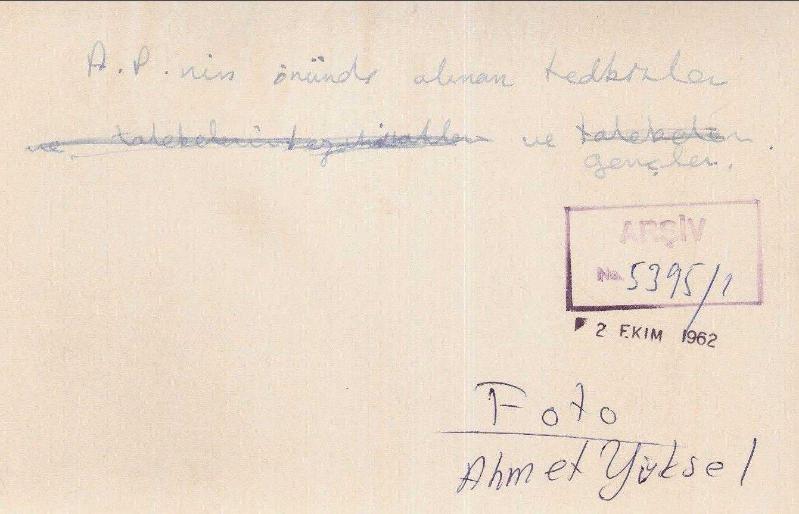 A.P. nin önünde alınan tedbirler
ve talebelerin ve talebeler
gençler.
ARŞİV
No. 5395/1
2 EKİM 1962
Foto
Ahmet Yüksel